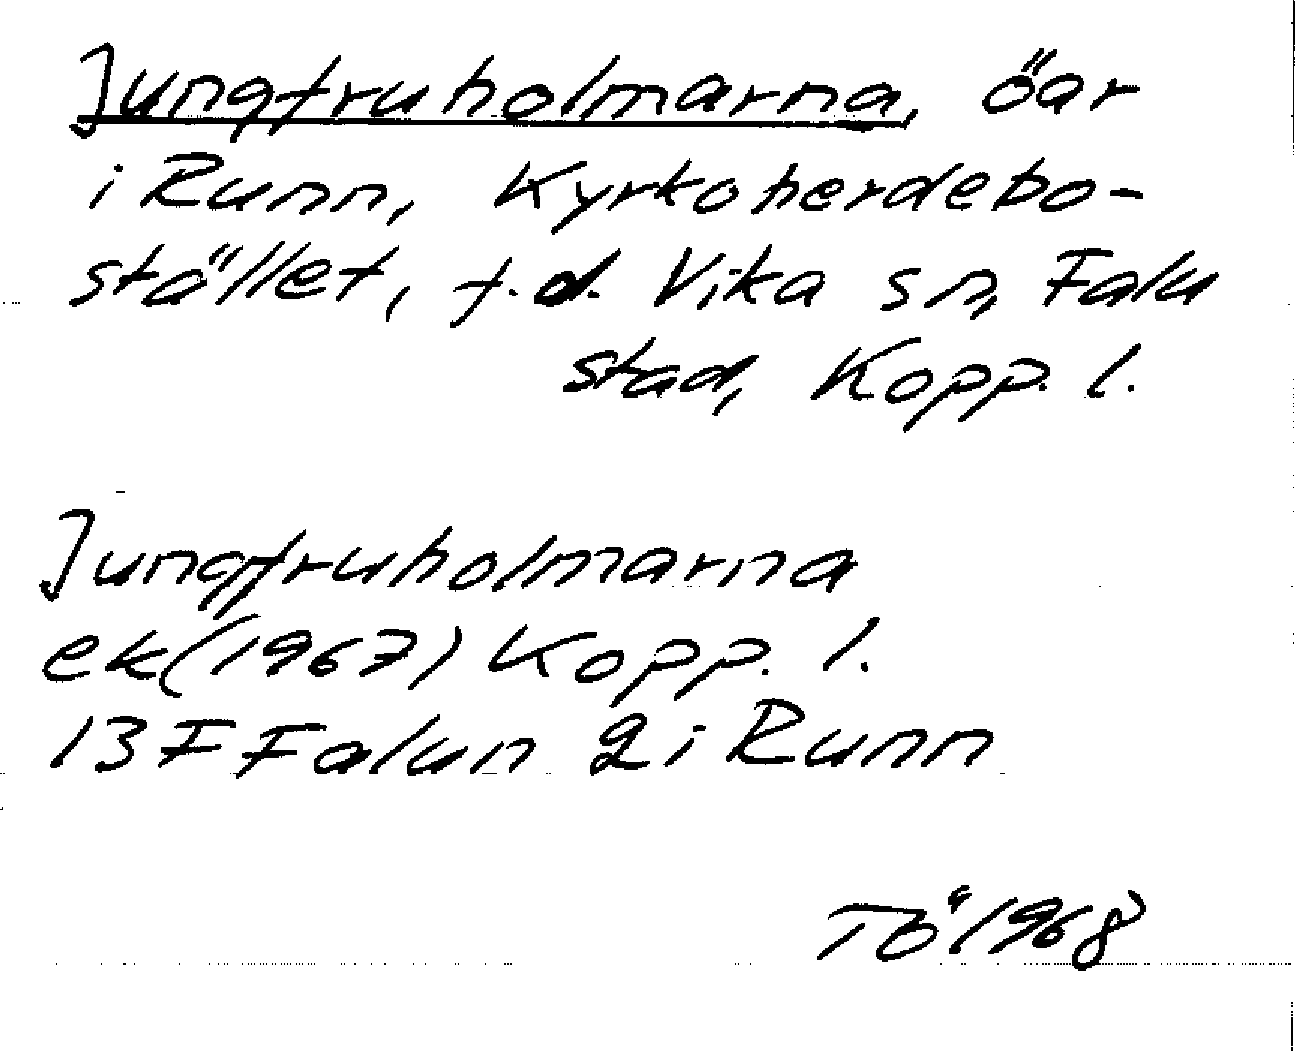 Jungfruholmarna, öar
i Runn, Kyrkoherdebo-
stället, f.d. Vika sn, Falu
stad, Kopp. l.
Jungfruholmarna
ek (1967) Kopp. l.
13F Falun 2 i Runn
TÖ 1968